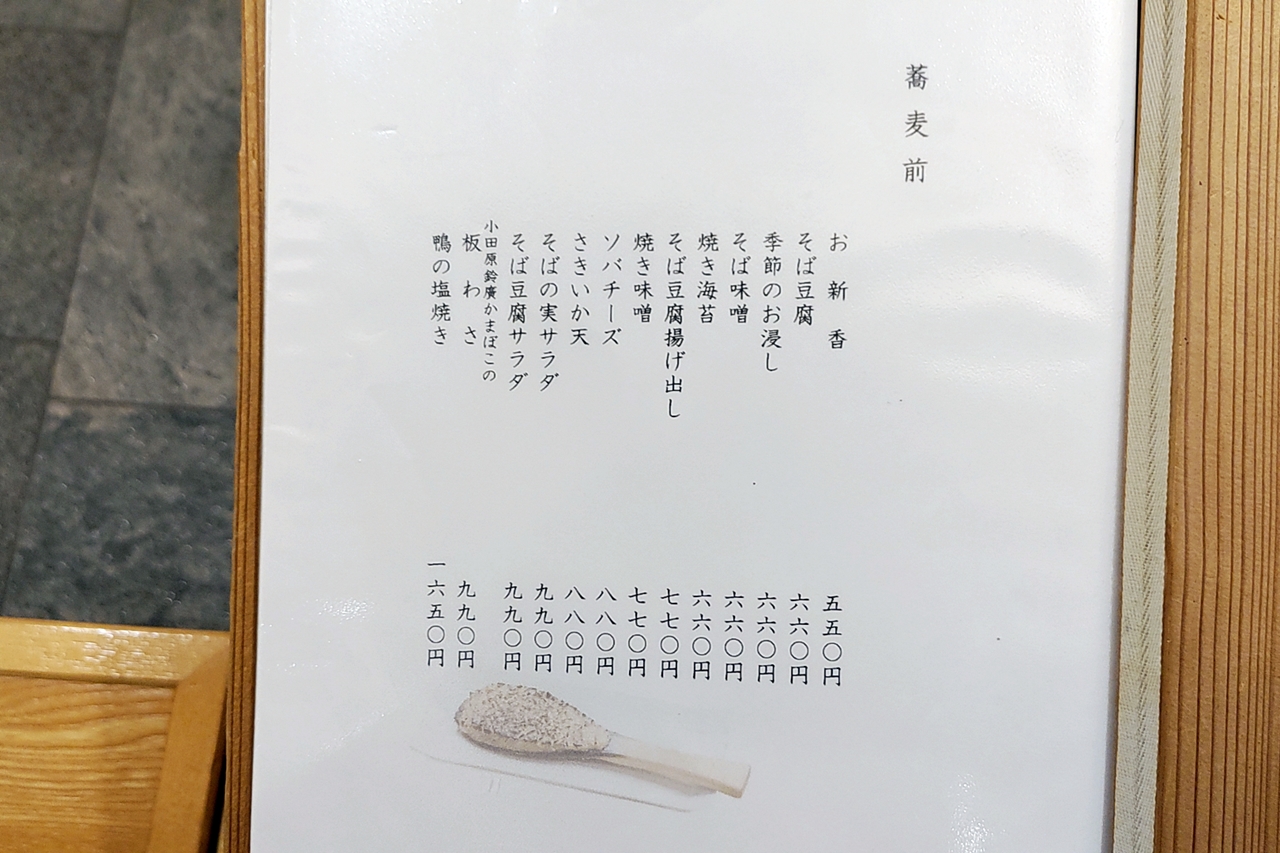 蕎麦前
お新香
五五〇円
そば豆腐
六六〇円
季節のお浸し
六六〇円
そば味噌
六六〇円
焼き海苔
六六〇円
そば豆腐揚げ出し
七七〇円
焼き味噌
七七〇円
ソバチーズ
八八〇円
さきいか天
八八〇円
そばの実サラダ
九九〇円
そば豆腐サラダ
九九〇円
小田原鈴廣かまぼこの
板わさ
九九〇円
鴨の塩焼き
一六五〇円